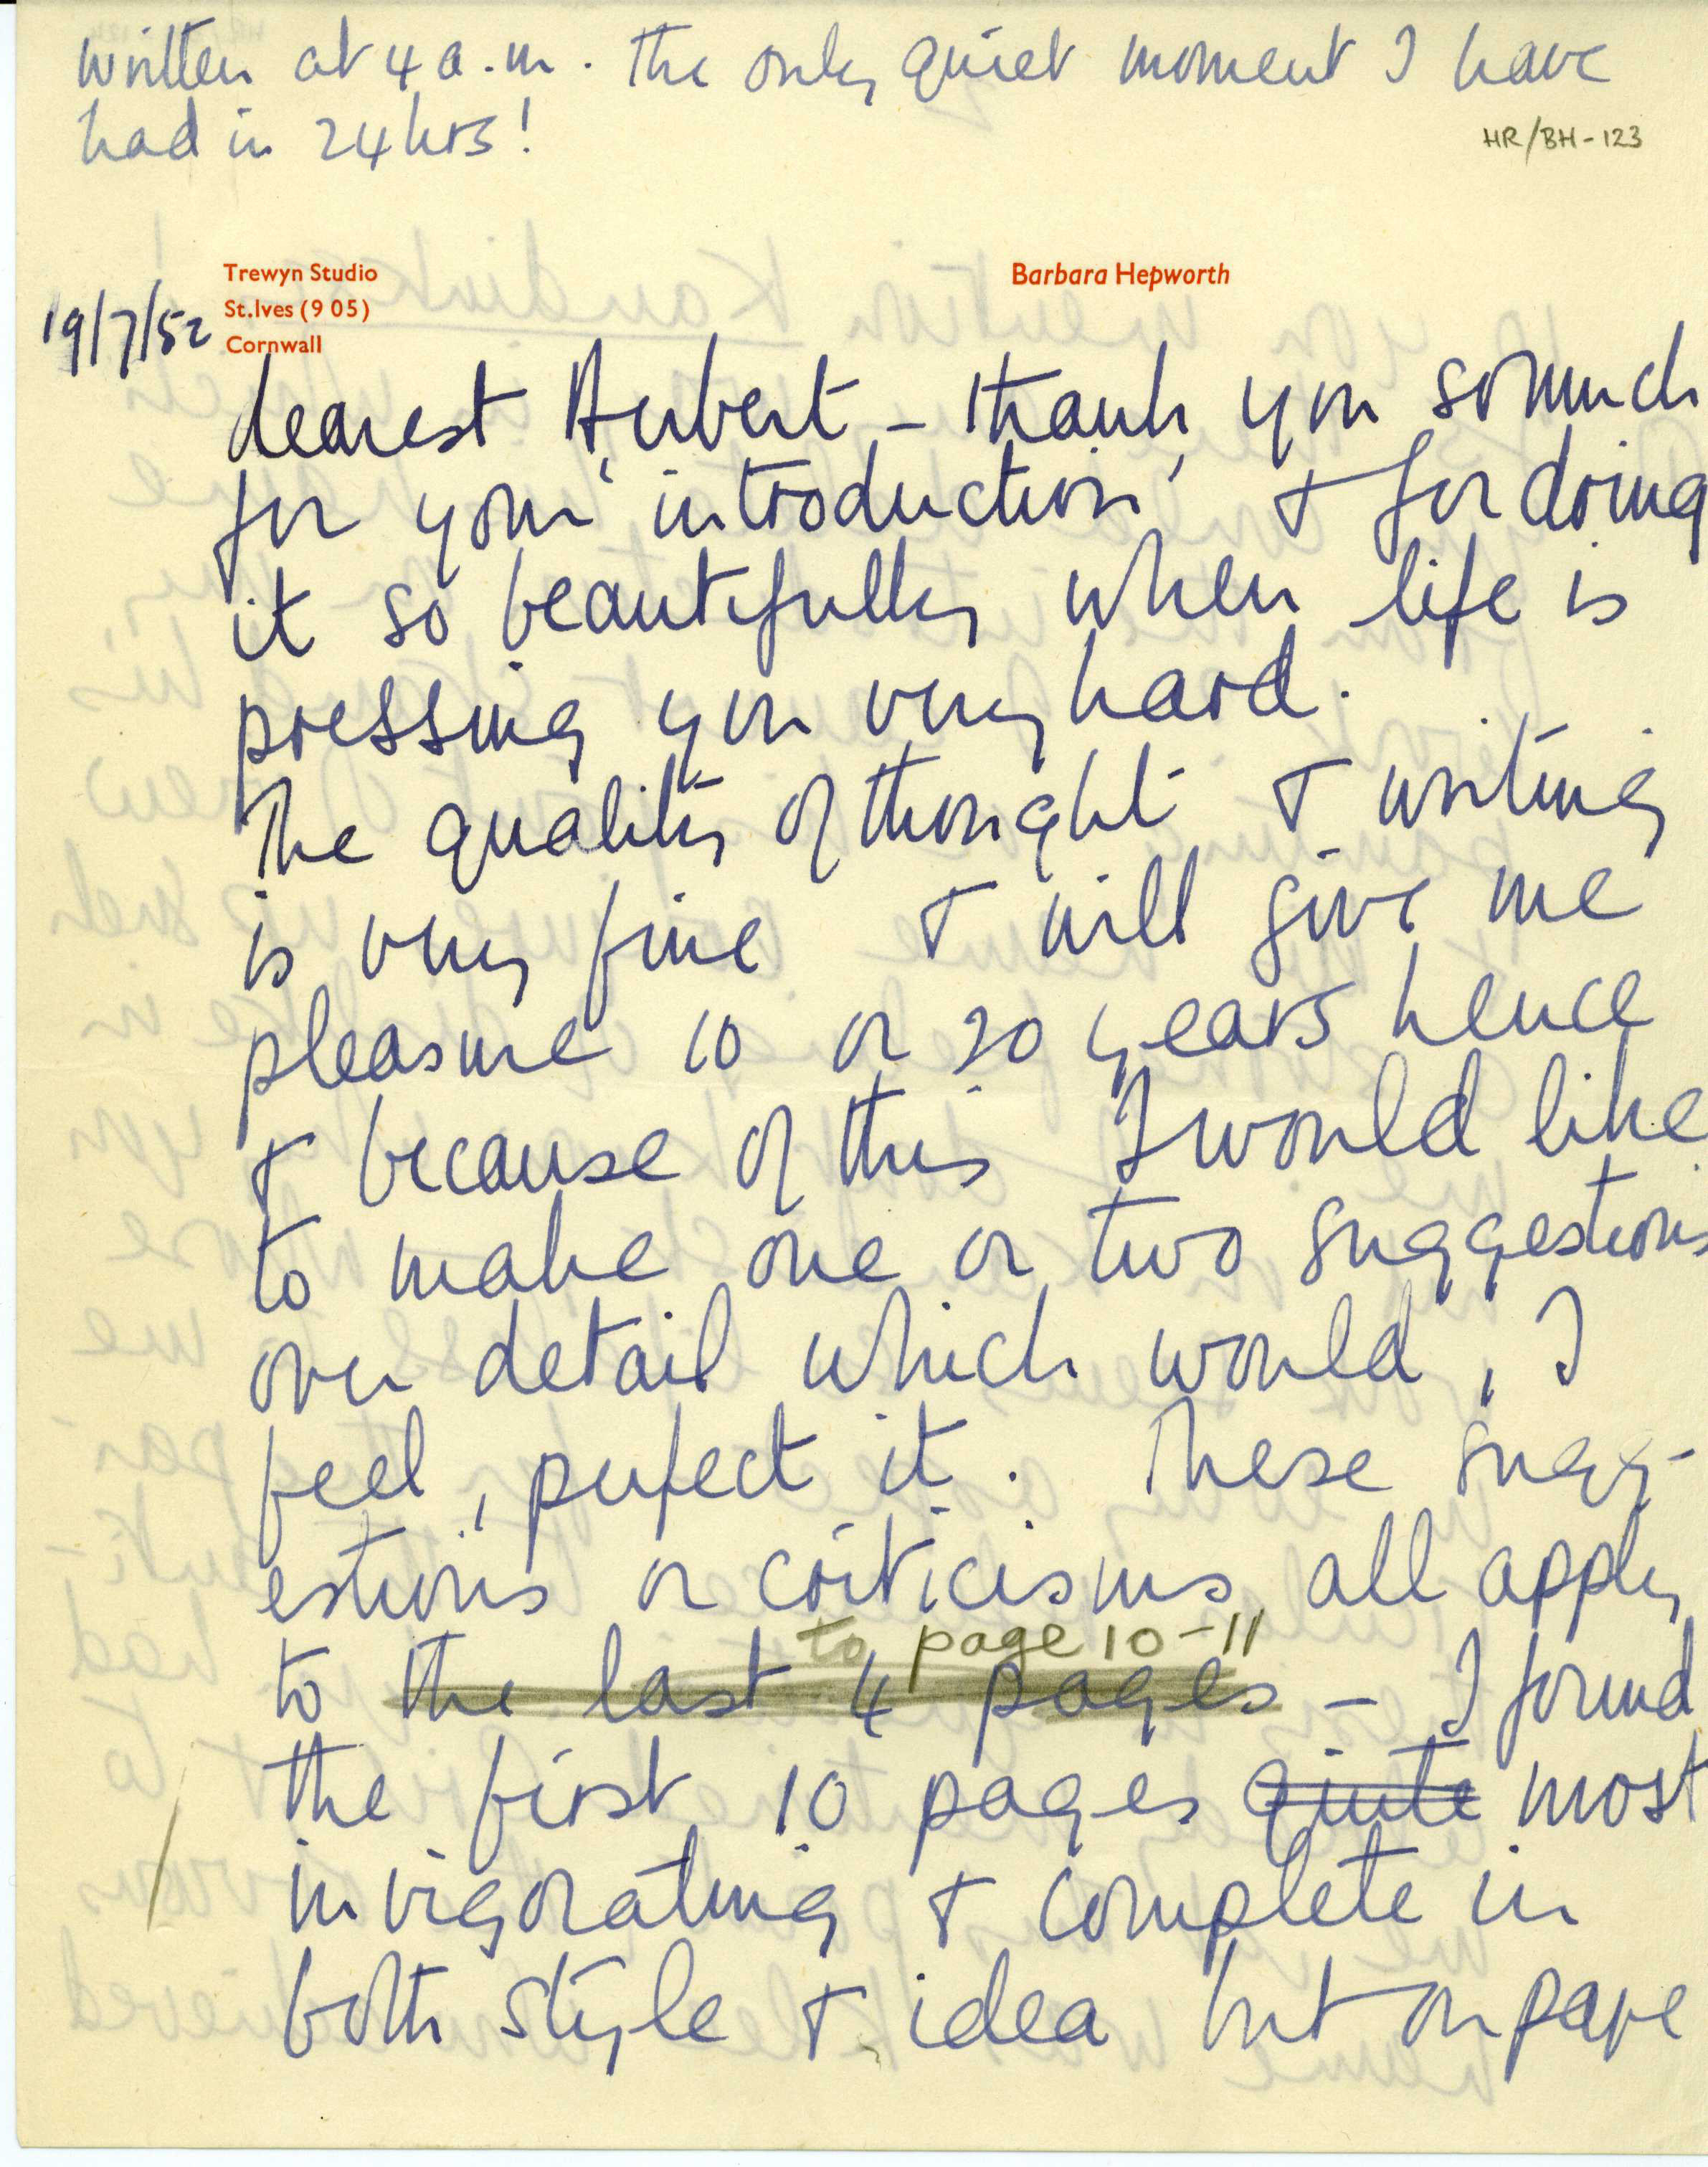 written at 4 a.m. The only quiet moment I have
had in 24 hrs!
HR/BH-123
Trewyn Studio
St.Ives (9 05)
Cornwall
Barbara Hepworth
19/7/52
dearest Herbert – thank you so much
for your 'introduction' & for doing
it so beautifully when life is
pressing you very hard.
The quality of thought & writing
is very fine & will give me
pleasure 10 or 20 years hence
& because of this I would like
to make one or two suggestions
over detail which would, I
feel, perfect it. These sugg-
estions or criticisms all apply
to page 10-11
to the last 4 pages – I found
the first 10 pages quite most
invigorating & complete in
both style & idea but on page